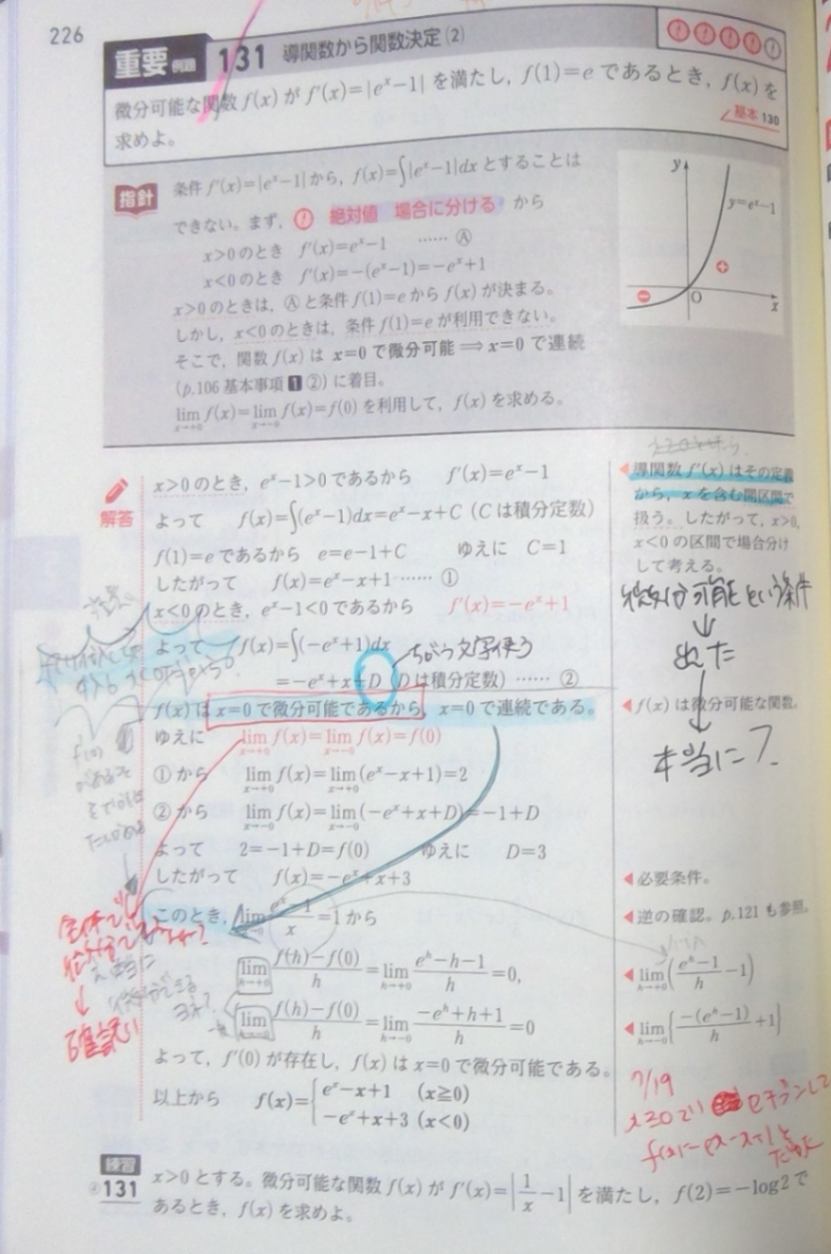 226
重要 例題 131 導関数から関数決定 (2)
微分可能な関数 f(x) が f'(x)=|e^x−1| を満たし, f(1)=e であるとき, f(x) を
求めよ。
基本 130
指針
条件 f'(x)=|e^x−1| から, f(x)=∫|e^x−1|dx とすることは
できない。まず, ! 絶対値 場合に分ける から
x>0 のとき f'(x)=e^x−1 …… Ⓐ
x<0 のとき f'(x)=−(e^x−1)=−e^x+1
x>0 のときは, Ⓐ と条件 f(1)=e から f(x) が決まる。
しかし, x<0 のときは, 条件 f(1)=e が利用できない。
そこで, 関数 f(x) は x=0 で微分可能 ⟹ x=0 で連続
(p.106 基本事項 1 ②) に着目。
lim_{x→+0} f(x)=lim_{x→−0} f(x)=f(0) を利用して, f(x) を求める。
y
y=e^x−1
+
−
O
x
解答
x>0 のとき, e^x−1>0 であるから f'(x)=e^x−1
よって f(x)=∫(e^x−1)dx=e^x−x+C (C は積分定数)
f(1)=e であるから e=e−1+C ゆえに C=1
したがって f(x)=e^x−x+1 …… ①
x<0 のとき, e^x−1<0 であるから f'(x)=−e^x+1
よって f(x)=∫(−e^x+1)dx
ちがう文字使う
=−e^x+x+D (D は積分定数) …… ②
f(x) は x=0 で微分可能であるから, x=0 で連続である。
ゆえに lim_{x→+0} f(x)=lim_{x→−0} f(x)=f(0)
①から lim_{x→+0} f(x)=lim_{x→+0} (e^x−x+1)=2
②から lim_{x→−0} f(x)=lim_{x→−0} (−e^x+x+D)=−1+D
よって 2=−1+D=f(0) ゆえに D=3
したがって f(x)=−e^x+x+3
このとき, lim_{x→0} (e^x−1)/x=1 から
lim_{h→+0} (f(h)−f(0))/h=lim_{h→+0} (e^h−h−1)/h=0,
lim_{h→−0} (f(h)−f(0))/h=lim_{h→−0} (−e^h+h+1)/h=0
よって, f'(0) が存在し, f(x) は x=0 で微分可能である。
以上から f(x)={ e^x−x+1 (x≧0)
−e^x+x+3 (x<0)
◀導関数 f'(x) はその定義
から, x を含む開区間で
扱う。したがって, x>0,
x<0 の区間で場合分け
して考える。
微分可能という条件
↓
出た
↓
本当に?
◀f(x) は微分可能な関数。
◀必要条件。
◀逆の確認。p.121 も参照。
◀lim_{h→+0} ((e^h−1)/h −1)
◀lim_{h→−0} {−(e^h−1)/h +1}
↓
確認!!
7/19
練習
131 x>0 とする。微分可能な関数 f(x) が f'(x)=|1/x −1| を満たし, f(2)=−log2 で
あるとき, f(x) を求めよ。